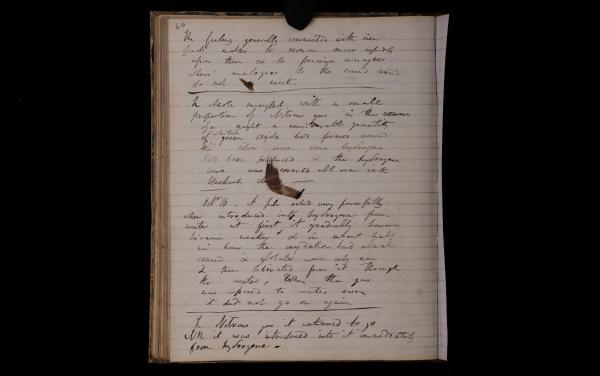 60
The feeling generally connected with new
facts enables to reason more rapidly
upon them & to perceive analogies
where analogies to the sound mind
do not exist.
In Azote mingled with a small
proportion of Nitrous gas in the course
of a night a considerable quantity
of green oxide had formed round
the silver wire some hydrogene
had been produced & the hydrogene
wire was covered all over with
blackish
Octr 10. A pile acted very powerfully
when introduced into hydrogene from
water at first it gradually however
became weaker & in about half
an hour the oxydation had almost
ceased & globules were only now
& then liberated from it through
the water, When the gas
was exposed to water even
it did not go on again
In Nitrous gas it continued to go
NB it was introduced into it immediately
from hydrogene